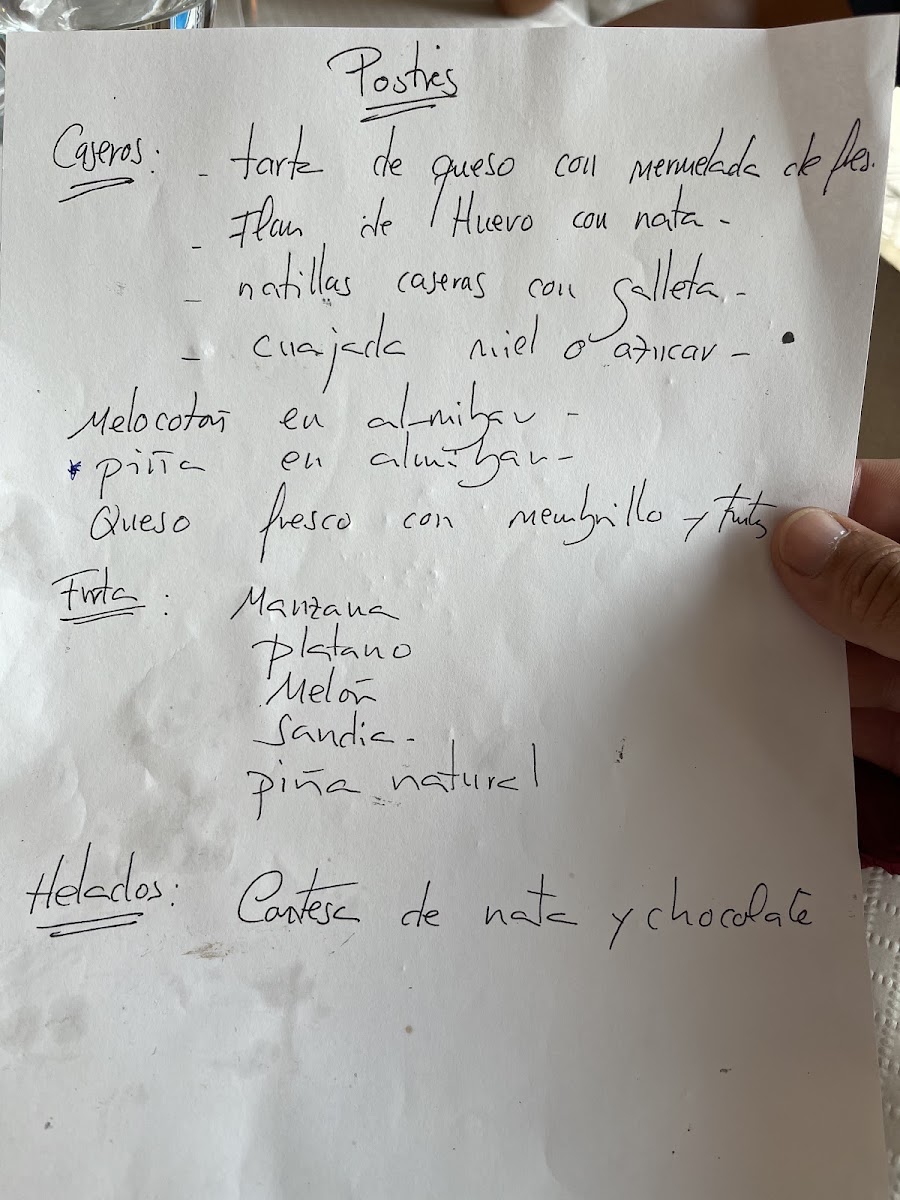 Postres
Caseros: - tarta de queso con mermelada de fres.
- Flan de Huevo con nata -
- natillas caseras con galleta -
- cuajada miel o azucar -
Melocotoñ en almibar -
* piña en almibar -
Queso fresco con membrillo y
Fruta : Manzana
platano
Meloñ
Sandia -
piña natural
Helados: Contesa de nata y chocolate